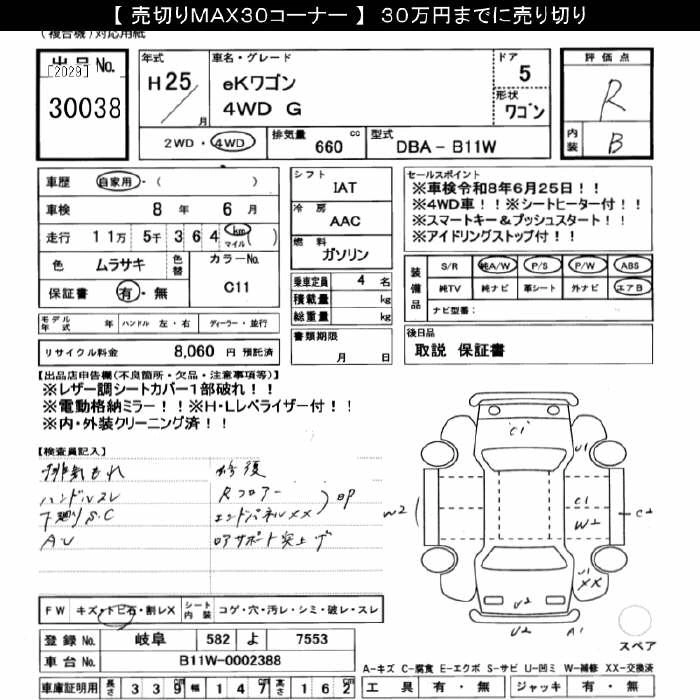 【 売切りMAX30コーナー 】 30万円までに売り切り
（複合機）対応用紙
出品No.
[2029]
30038
年式
H 25
月
車名・グレード
eKワゴン
4WD G
ドア
5
形状
ワゴン
評価点
R
内装
B
2WD ・ 4WD
排気量 660 cc
型式 DBA - B11W
車歴 自家用・( )
車検 8 年 6 月
走行 11万 5千 3 6 4 km マイル ( )
色 ムラサキ
色替
カラーNo. C11
保証書 有・無
シフト
IAT
冷房
AAC
燃料
ガソリン
乗車定員 4 名
積載量 kg
総重量 kg
書類期限
月 日
セールスポイント
※車検令和8年6月25日！！
※4WD車！！※シートヒーター付！！
※スマートキー＆プッシュスタート！！
※アイドリングストップ付！！
装備品
S/R 純A/W P/S P/W ABS
純TV 純ナビ 革シート 外ナビ エアB
ナビ型番：
後日品
取説 保証書
モデル年式 年 ハンドル 左・右 ディーラー・並行
リサイクル料金 8,060 円 預託済
【出品店申告欄（不良箇所・欠品・注意事項等）】
※レザー調シートカバー1部破れ！！
※電動格納ミラー！！※H・Lレベライザー付！！
※内・外装クリーニング済！！
【検査員記入】
排気もれ
ハンドルスレ
下廻りS.C
AU
修復
Rフロアー
エンドパネルXX
ロアサポート突上げ
C1
U1
C1
W2
W2
C2
U1
XX
U2
U2
A1
スペア
FW キズ・トビ石・割レX
シート内装 コゲ・穴・汚レ・シミ・破レ・スレ
登録No. 岐阜 582 よ 7553
車台No. B11W-0002388
車庫証明用 長さ 3 3 9 幅 1 4 7 高さ 1 6 2
A-キズ C-腐食 E-エクボ S-サビ U-凹ミ W-補修 XX-交換済
工具 有・無 ジャッキ 有・無